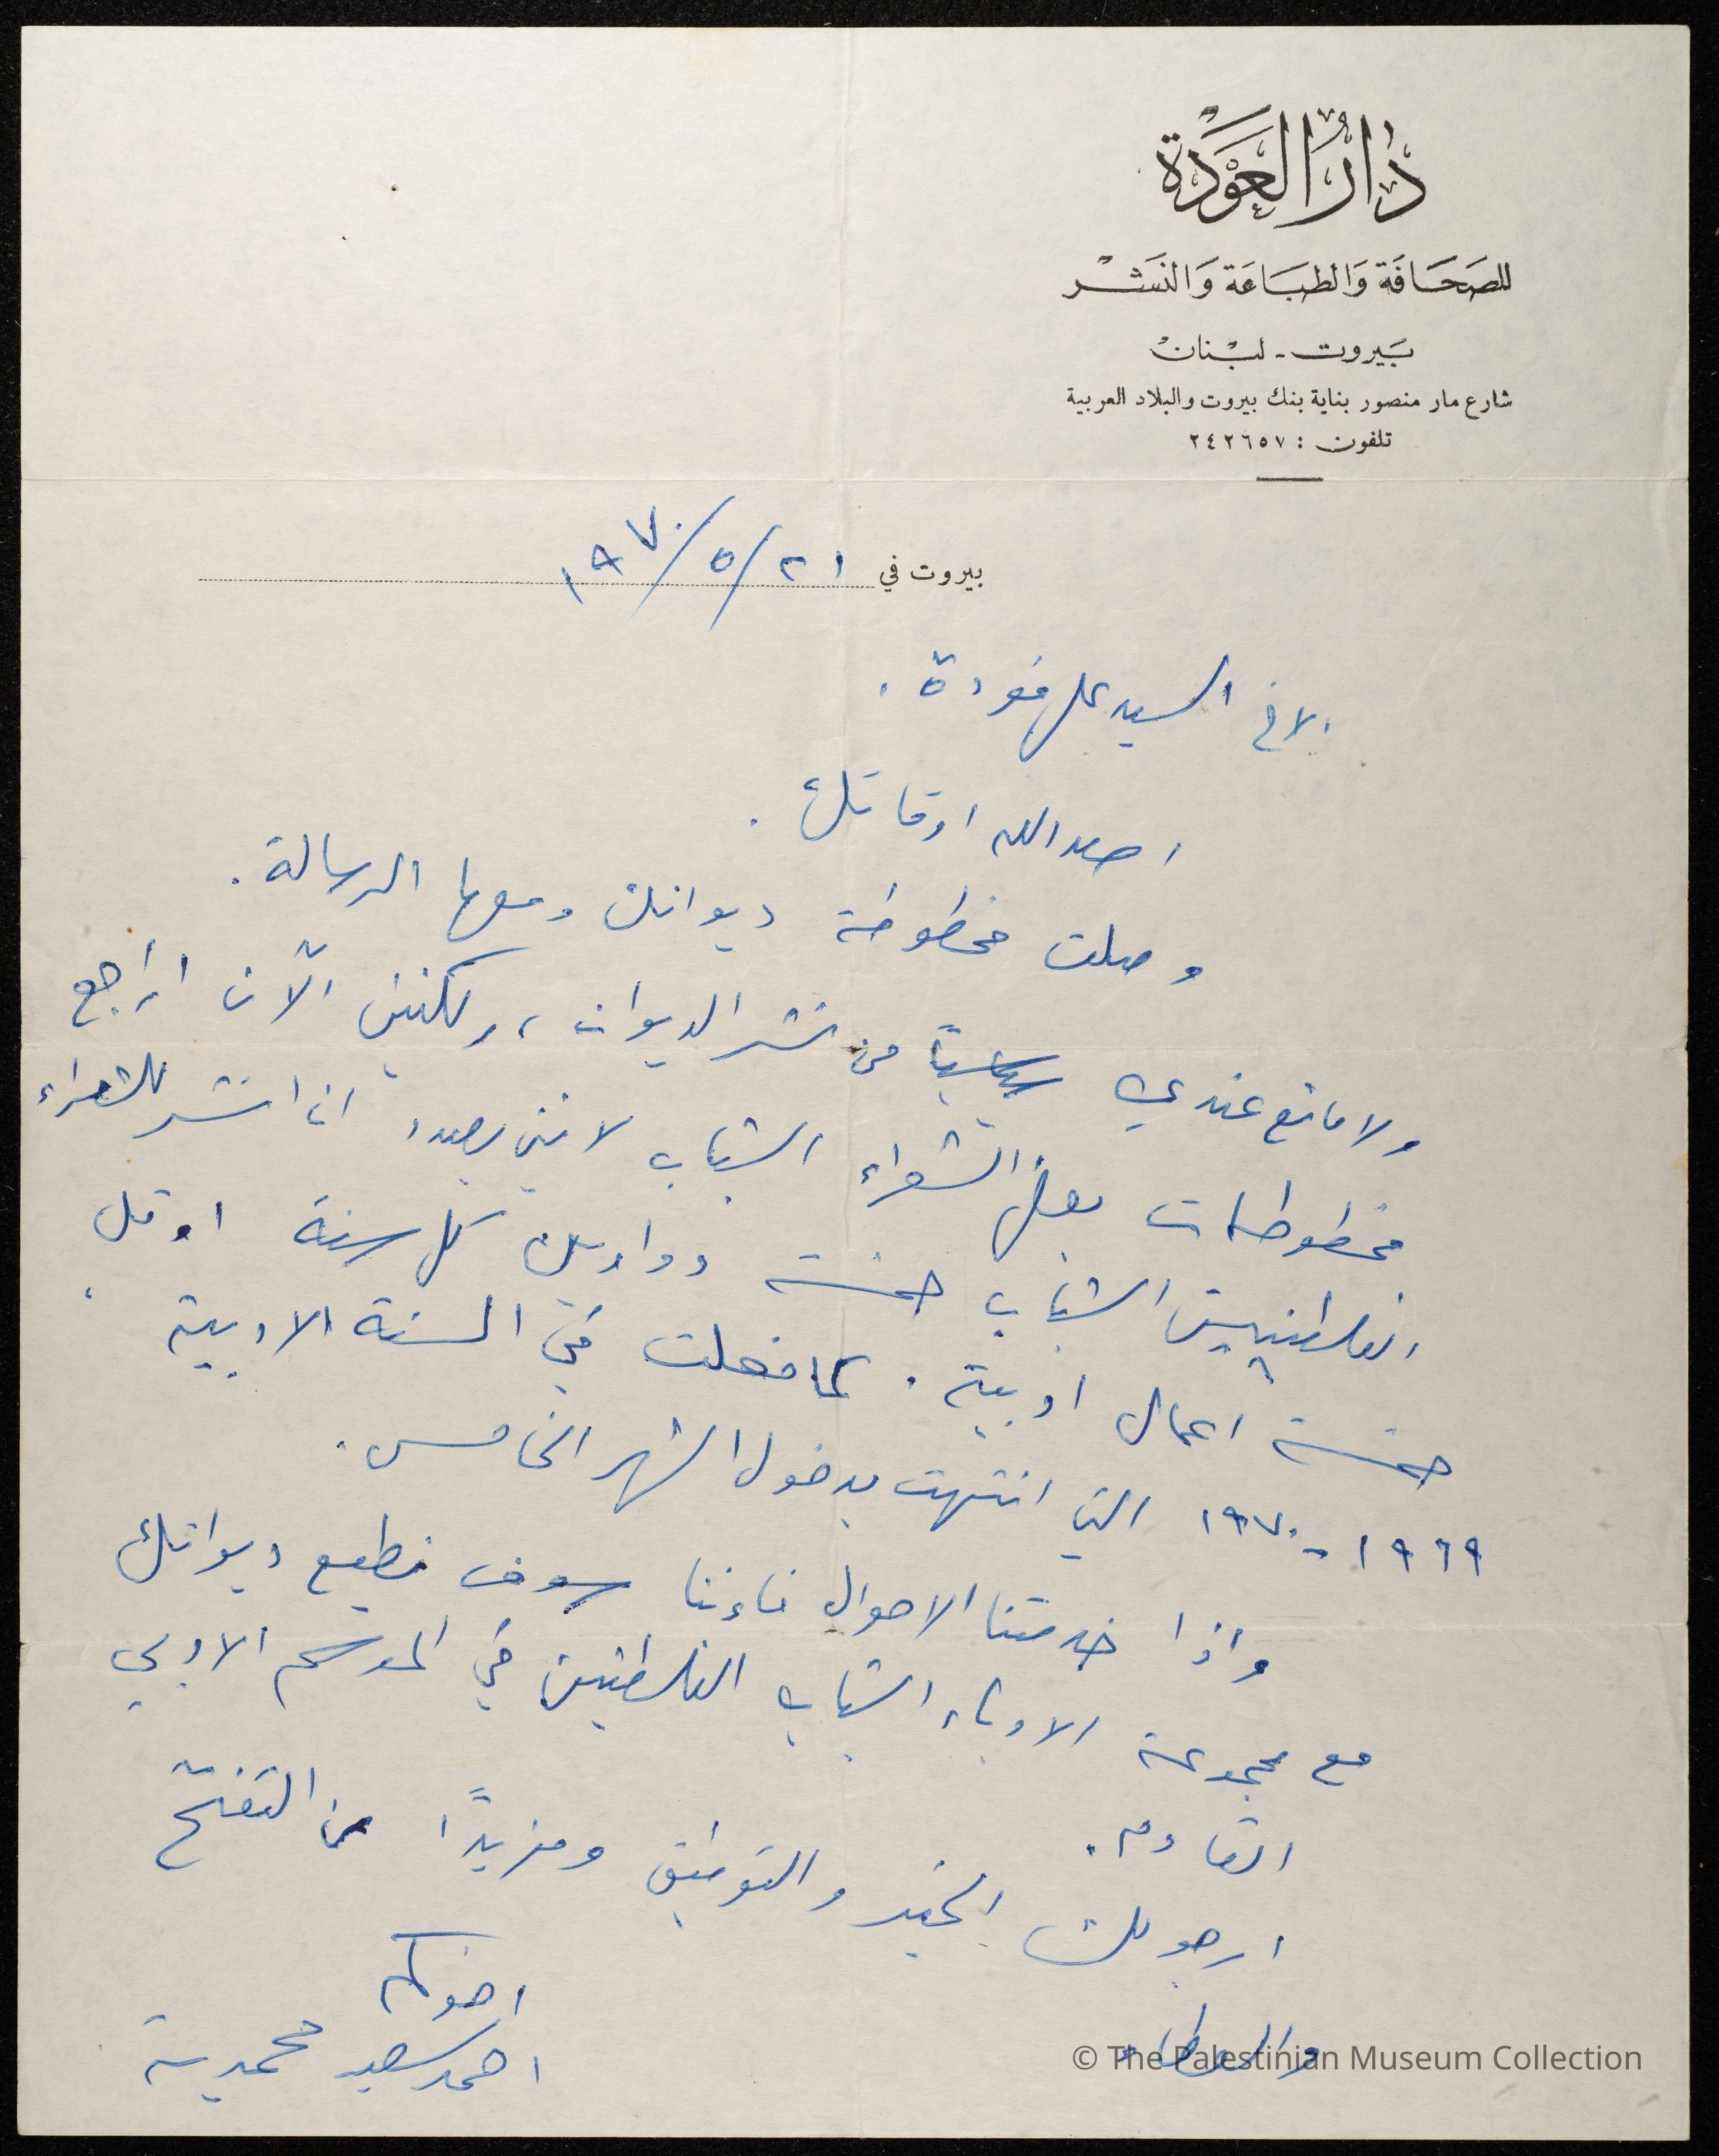 دَارُ العَوْدَة
للصَحَافَة وَالطبَاعَة وَالنَشْر
بَيروت - لبْنان
شارع مار منصور بناية بنك بيروت والبلاد العربية
تلفون : ٢٤٢٦٥٧
بيروت في ٢١/٥/١٩٧٠
الاخ السيد علي فودة .
اسعد الله اوقاتك .
وصلت مخطوطة ديوانك ومعها الرسالة .
ولا مانع عندي من نشر الديوان ، ولكنني الآن اراجع
مخطوطات بعض الشعراء الشباب لانني بصدد ان انشر للشعراء
الفلسطينيين الشباب خمسة دواوين كل سنة او قل
خمسة اعمال ادبية . كما فعلت في السنة الادبية
١٩٦٩ - ١٩٧٠ التي انتهت بدخول الشهر الخامس .
واذا خدمتنا الاحوال فاننا سوف نطبع ديوانك
مع مجموعة الادباء الشباب الفلسطينين في الموسم الادبي
القادم .
ارجو لك الخير والتوفيق ومزيدًا من التفتّح
والعطاء
اخوكم
احمد سعيد محمدية
© The Palestinian Museum Collection